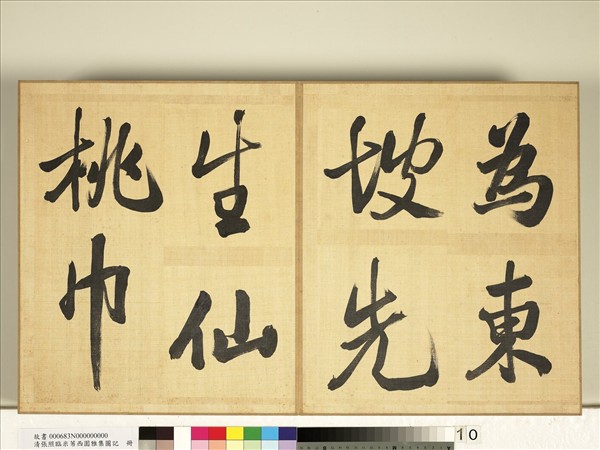 為東
坡先
生仙
桃巾
故書 000683N000000000
清張照臨米芾西園雅集圖記 冊
10